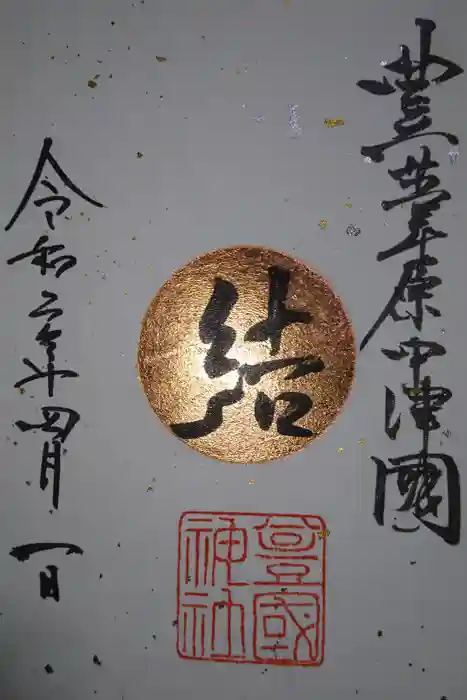 豐葦原中津國
結
豊國
神社
令和二年四月一日